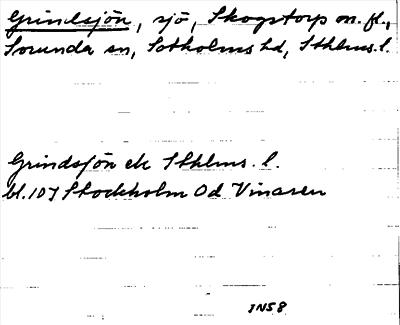 Grindsjön, sjö, Skogstorp m. fl.,
Sorunda sn, Sotholms hd, Sthlms. l.
Grindsjön ek Sthlms. l.
bl. 107 Stockholm Od Vinaren
JNS8